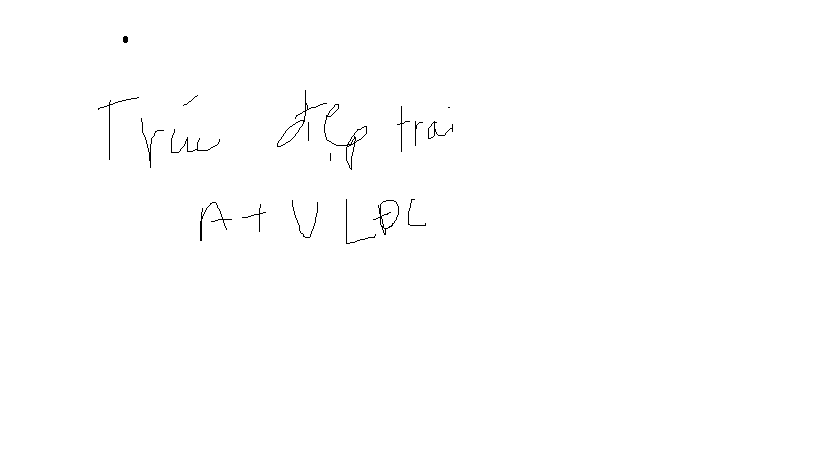 Trúc đẹp trai
A+ V LĐL